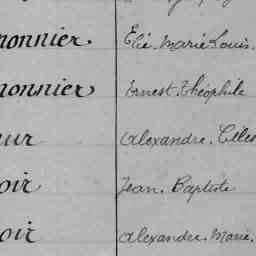 monnier. Elie. Marie Louis.
monnier Ernest. Théophile
eur Alexandre. Céles
oir Jean. Baptiste
oir Alexandre. Marie.